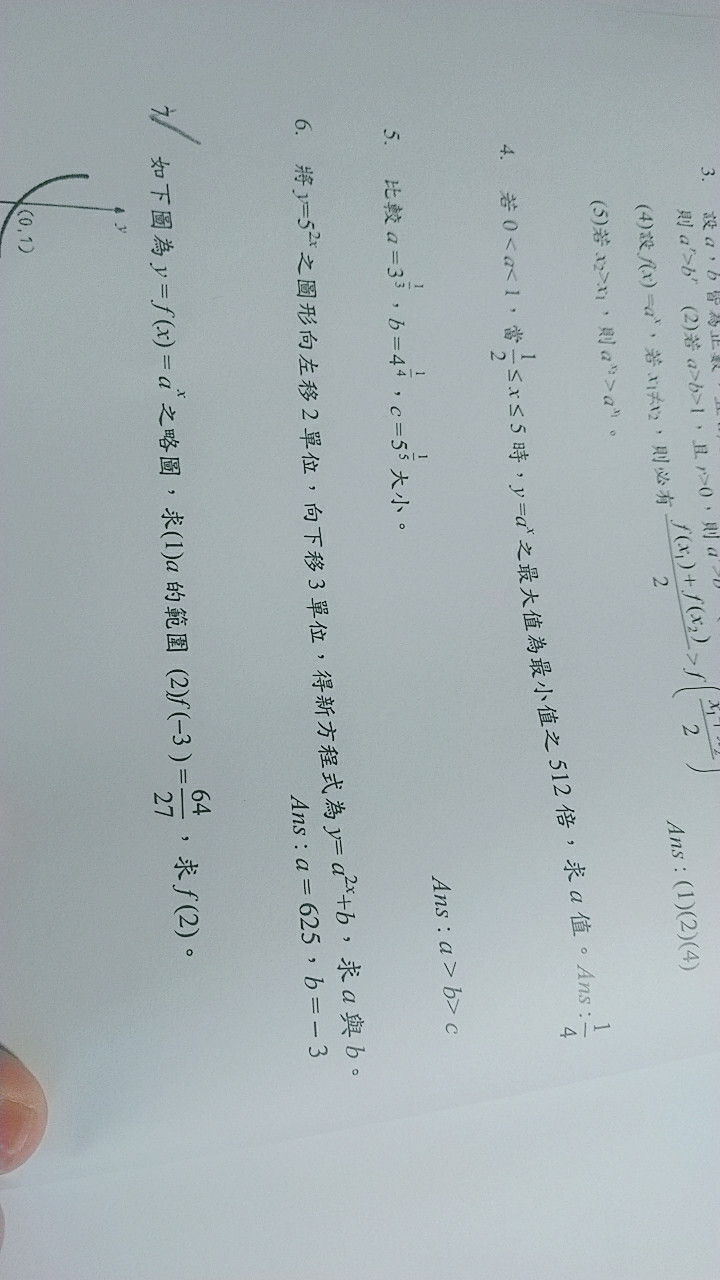 3. 設 a，b 皆為正數
則 aʳ>bʳ (2)若 a>b>1，且 r>0，則 a
(4)設 f(x)=aˣ，若 x₁≠x₂，則必有 \frac{f(x₁)+f(x₂)}{2}>f(\frac{x₁+x₂}{2})
(5)若 x₂>x₁，則 a^{x₂}>a^{x₁}。
Ans:(1)(2)(4)
4. 若 0<a<1，當 \frac{1}{2}≤x≤5 時，y=aˣ 之最大值為最小值之 512 倍，求 a 值。Ans:\frac{1}{4}
5. 比較 a=3^{\frac{1}{3}}，b=4^{\frac{1}{4}}，c=5^{\frac{1}{5}} 大小。
Ans:a>b>c
6. 將 y=5^{2x} 之圖形向左移 2 單位，向下移 3 單位，得新方程式為 y=a^{2x}+b，求 a 與 b。
Ans:a=625，b=-3
7 如下圖為 y=f(x)=aˣ 之略圖，求(1)a 的範圍 (2)f(-3)=\frac{64}{27}，求 f(2)。
y
(0,1)